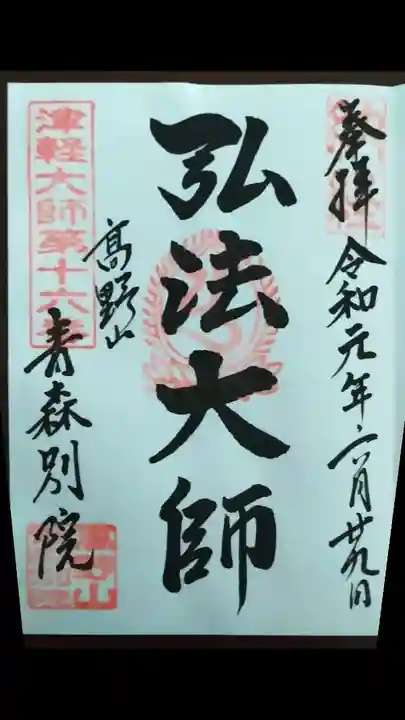 奉拝
令和元年六月廿九日
弘法大師
高野山
青森別院
津軽大師第十六番